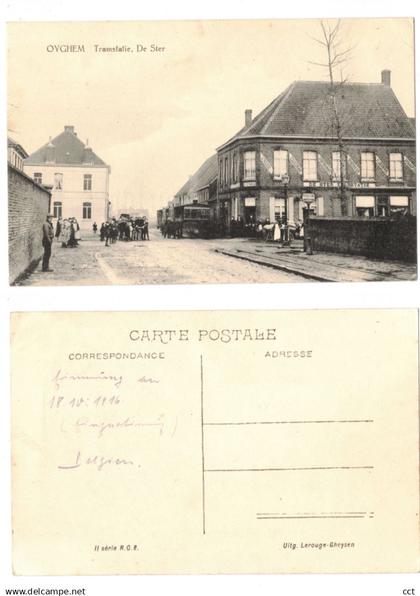 OYGHEM Tramstatie, De Ster
CARTE POSTALE
CORRESPONDANCE
ADRESSE
18.10.1916
Belgien.
II série R.O.R.
Uitg. Lerouge-Gheysen
cct